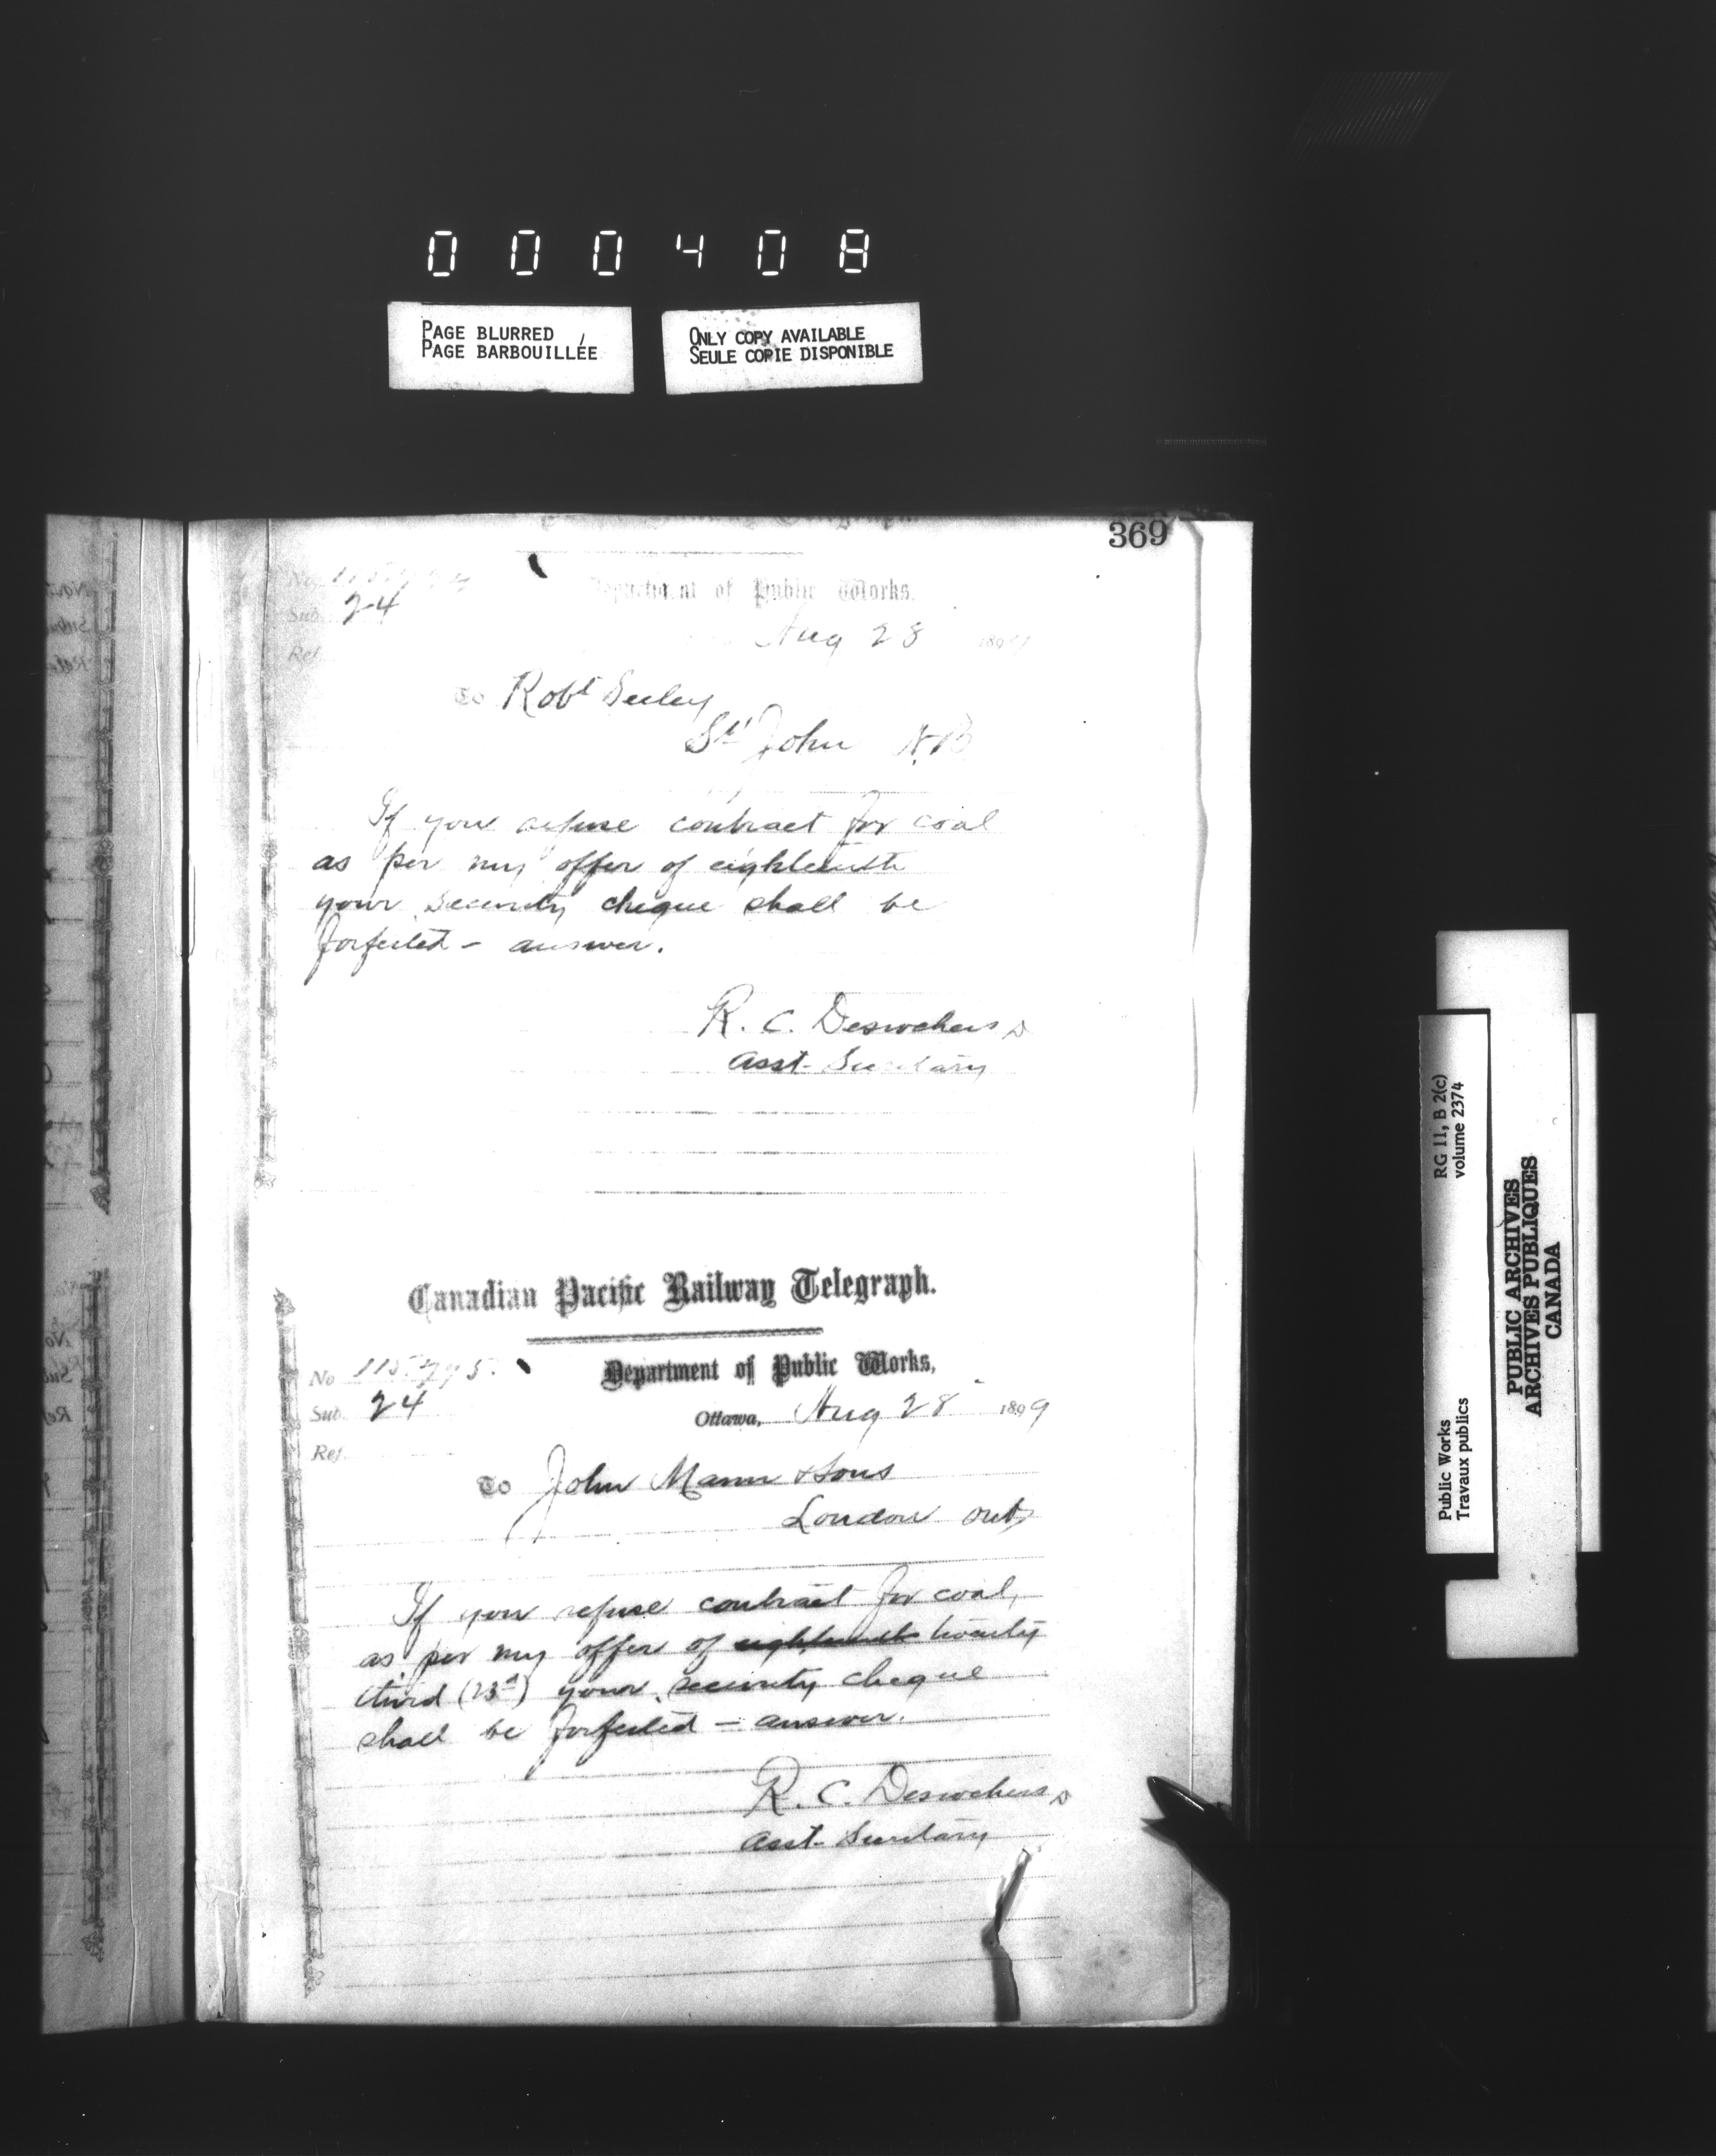 000408
PAGE BLURRED
PAGE BARBOUILLÉE
ONLY COPY AVAILABLE
SEULE COPIE DISPONIBLE
369
No
Sub. 24
Department of Public Works.
Ref.
Aug 28 1899
To Robt Seeley
St John N.B
If you refuse contract for coal
as per my offer of eighteenth
your security cheque shall be
forfeited – answer.
R. C. Desrochers
Asst. Secretary
Canadian Pacific Railway Telegraph.
No 115.775.
Department of Public Works,
Sub. 24
Ottawa, Aug 28 1899
Ref.
To John Mann & Sons
London Ont
If you refuse contract for coal,
as per my offer of eighteenth twenty
third (23d) your security cheque
shall be forfeited – answer.
R. C. Desrochers
Asst. Secretary
RG 11, B 2(c)
volume 2374
Public Works
Travaux publics
PUBLIC ARCHIVES
ARCHIVES PUBLIQUES
CANADA